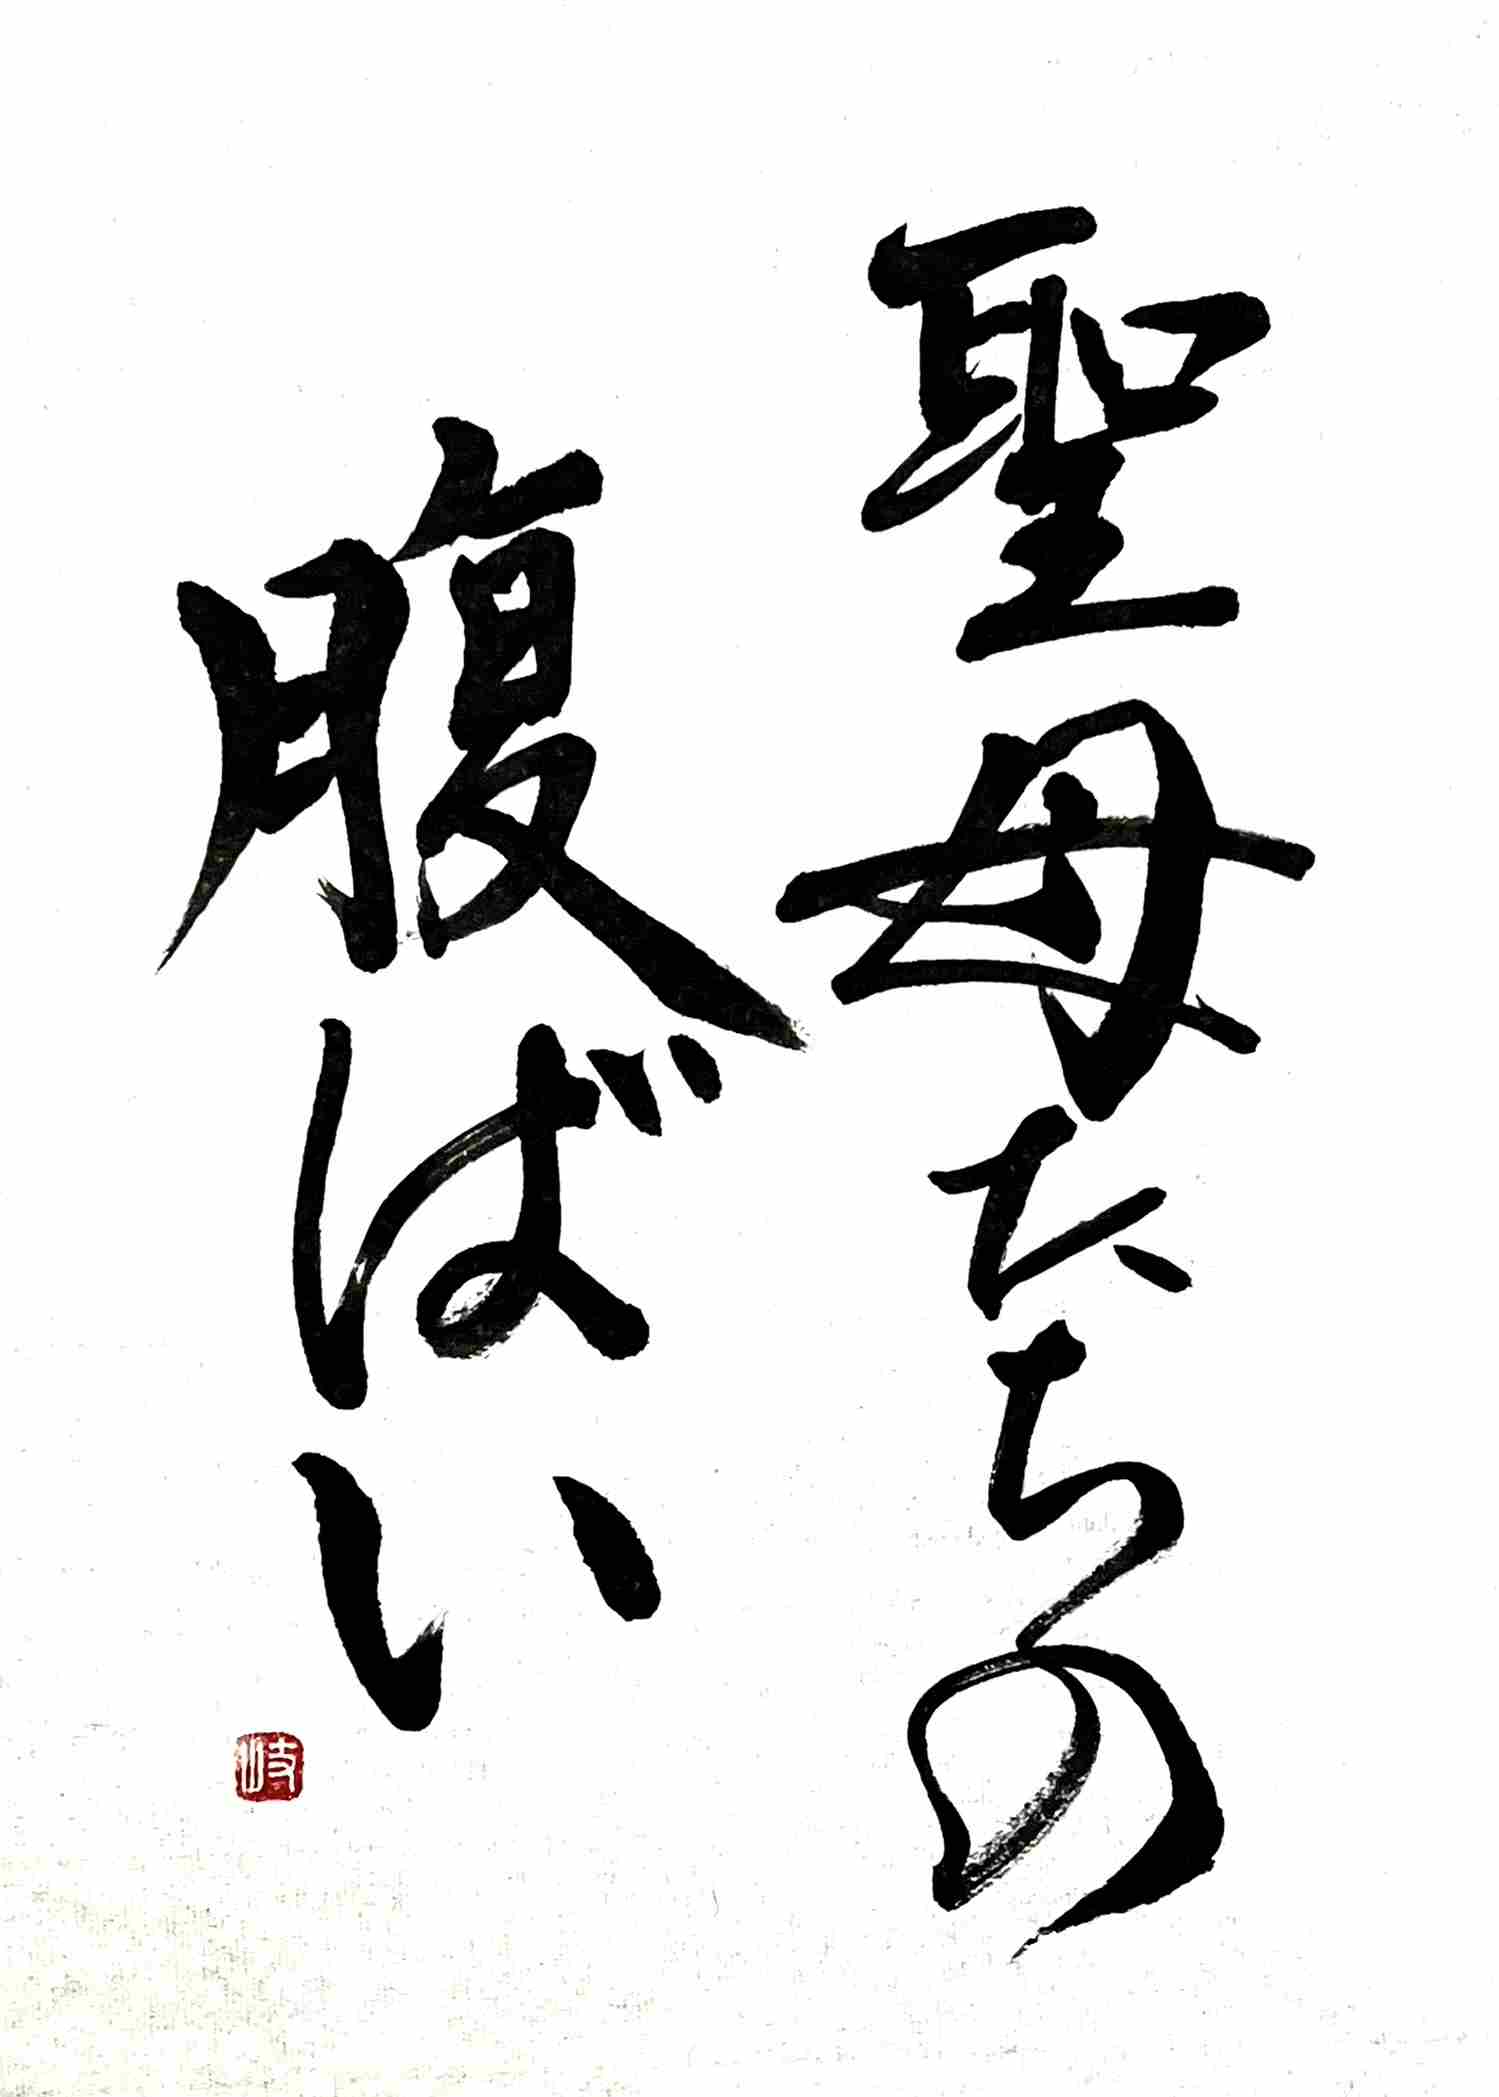 聖母たちの
腹ばい
岐